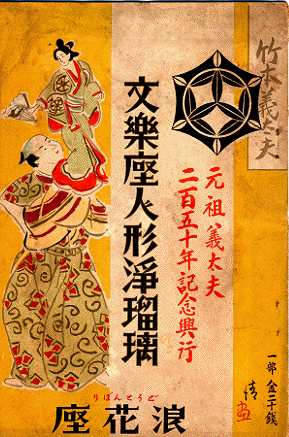 竹本義太夫
元祖義太夫
二百五十年記念興行
文樂座人形淨瑠璃
どうとんぼり
浪花座
一部 金二十錢